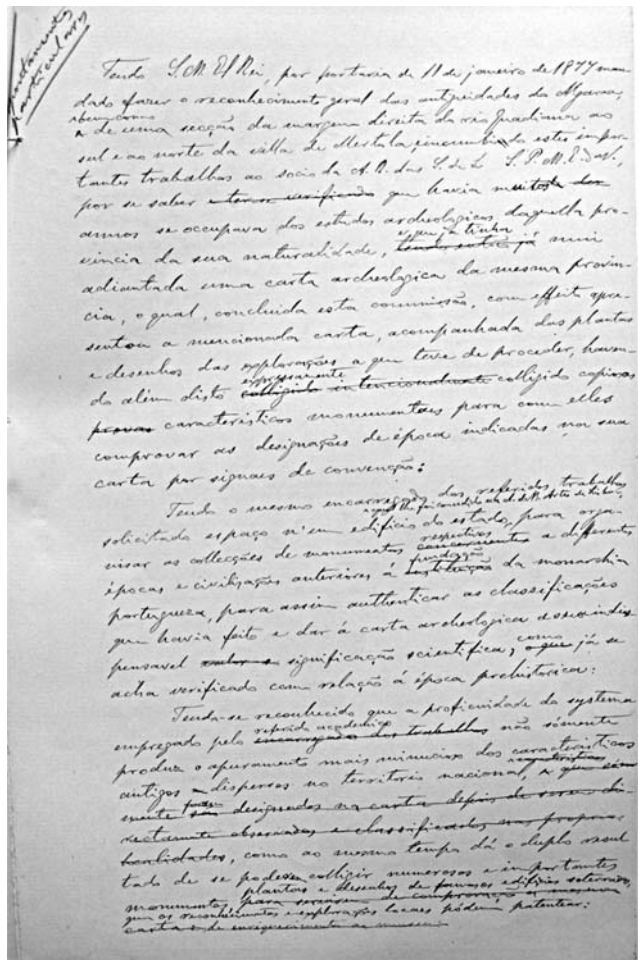 Apontamentos
particulares
Tendo S. M. El Rei, por portaria de 11 de janeiro de 1877 man
dado fazer o reconhecimento geral das antiguidades do Algarve,
e bem como
e de uma secção da margem direita do rio Guadiana ao
sul e ao norte da villa de Mertola incumbindo estes impor
tantes trabalhos ao socio da A. R. das S. de L. S. P. M. E. da V.,
por se saber e ter-se verificado que havia muitos annos
annos se occupava dos estudos archeologicos daquella pro
e que já tinha
vincia da sua naturalidade, mui
adiantada uma carta archeologica da mesma provin
cia, o qual, concluida esta commissão, com effeito apre
sentou a mencionada carta, acompanhada das plantas
e desenhos das explorações a que teve de proceder, haven
expressamente
do além disto colligido intencionalmente colligido copiosos
provas caracteristicos monumentaes para com elles
comprovar as designações de época indicadas na sua
carta por signaes de convenção:
Tendo o mesmo encarregado dos referidos trabalhos
solicitado espaço n'um edificio do estado, para orga
respectivos
nisar as collecções de monumentos concernentes a differentes
fundação
épocas e civilisações anteriores á instituição da monarchia
portugueza, para assim authenticar as classificações
que havia feito e dar á carta archeologica a sua indis
como
pensavel valor e significação scientifica, o que já se
acha verificado com relação á época prehistorica:
Tendo-se reconhecido que a proficuidade do systema
referido academico
empregado pelo encarregado dos trabalhos não sómente
produz o apuramento mais minucioso dos caracteristicos
antigos dispersos no territorio nacional, e que
mente designados na carta depois de serem di
rectamente observados e classificados nas proprias
localidades, como ao mesmo tempo dá o duplo resul
tado de se poderem colligir numerosos e importantes
plantas e desenhos de famosos edificios soterrados,
monumentos para servirem de comprovação á mesma
que os reconhecimentos e explorações locaes pódem patentear:
carta e de enriquecimento ao museu